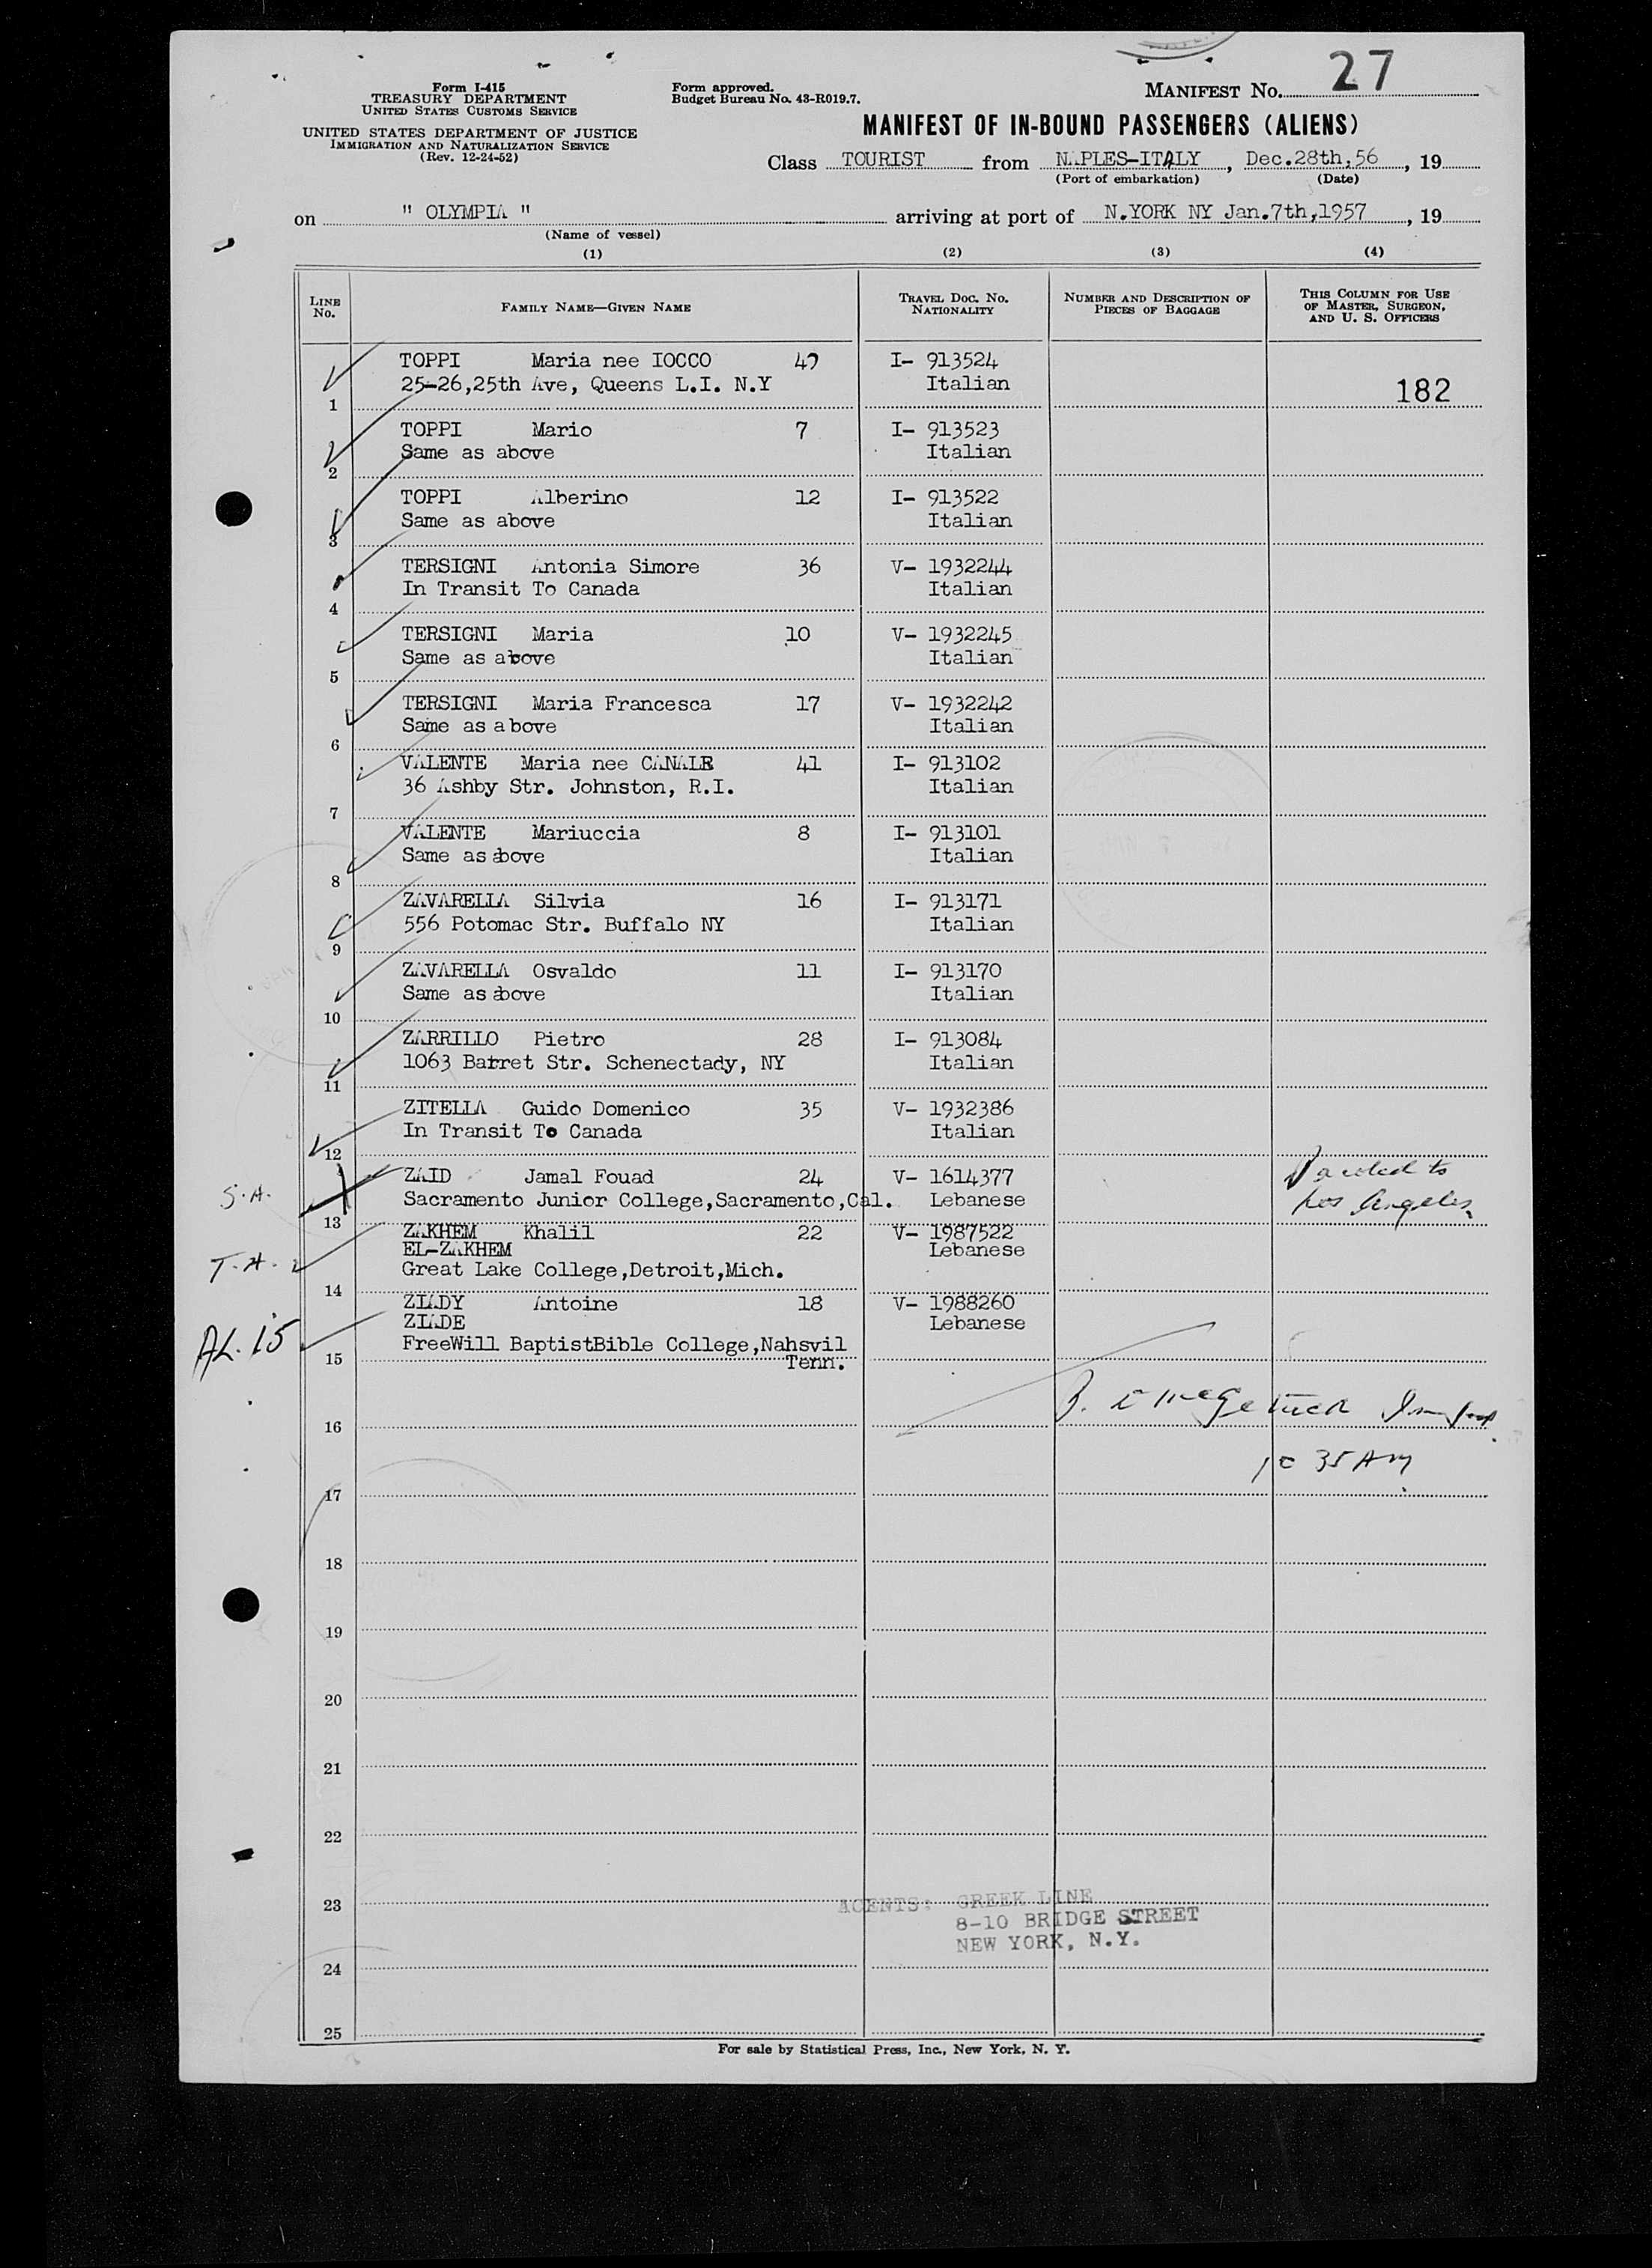 27
Form I-415
TREASURY DEPARTMENT
UNITED STATES CUSTOMS SERVICE
UNITED STATES DEPARTMENT OF JUSTICE
IMMIGRATION AND NATURALIZATION SERVICE
(Rev. 12-24-52)
Form approved.
Budget Bureau No. 43-R019.7.
MANIFEST No.
MANIFEST OF IN-BOUND PASSENGERS (ALIENS)
Class TOURIST from N.PLES-ITALY, Dec.28th,56, 19
(Port of embarkation) (Date)
on " OLYMPIA " arriving at port of N.YORK NY Jan.7th,1957, 19
(Name of vessel)
(1) (2) (3) (4)
LINE No. FAMILY NAME—GIVEN NAME TRAVEL DOC. No. NATIONALITY NUMBER AND DESCRIPTION OF PIECES OF BAGGAGE THIS COLUMN FOR USE OF MASTER, SURGEON, AND U. S. OFFICERS
TOPPI Maria nee IOCCO I- 913524
25-26,25th Ave, Queens L.I. N.Y Italian
1 182
TOPPI Mario 7 I- 913523
Same as above Italian
2
TOPPI Alberino 12 I- 913522
Same as above Italian
3
TERSIGNI Antonia Simore 36 V- 1932244
In Transit To Canada Italian
4
TERSIGNI Maria 10 V- 1932245
Same as above Italian
5
TERSIGNI Maria Francesca 17 V- 1932242
Same as above Italian
6
VALENTE Maria nee CANALE 41 I- 913102
36 Ashby Str. Johnston, R.I. Italian
7
VALENTE Mariuccia 8 I- 913101
Same as above Italian
8
ZAVARELLA Silvia 16 I- 913171
556 Potomac Str. Buffalo NY Italian
9
ZAVARELLA Osvaldo 11 I- 913170
Same as above Italian
10
ZARRILLO Pietro 28 I- 913084
1063 Barret Str. Schenectady, NY Italian
11
ZITELLA Guido Domenico 35 V- 1932386
In Transit To Canada Italian
12
ZAID Jamal Fouad 24 V- 1614377 to
S.A. Sacramento Junior College,Sacramento,Cal. Lebanese Los Angeles
13
ZAKHEM Khalil 22 V- 1987522
EL-ZAKHEM Lebanese
T.A. Great Lake College,Detroit,Mich.
14
ZIADY Antoine 18 V- 1988260
ZIADE Lebanese
AL. 15 FreeWill BaptistBible College,Nahsvil
15 Tenn.
16
10 35 AM
17
18
19
20
21
22
23 AGENTS: GREEK LINE
8-10 BRIDGE STREET
NEW YORK, N.Y.
24
25
For sale by Statistical Press, Inc., New York, N. Y.